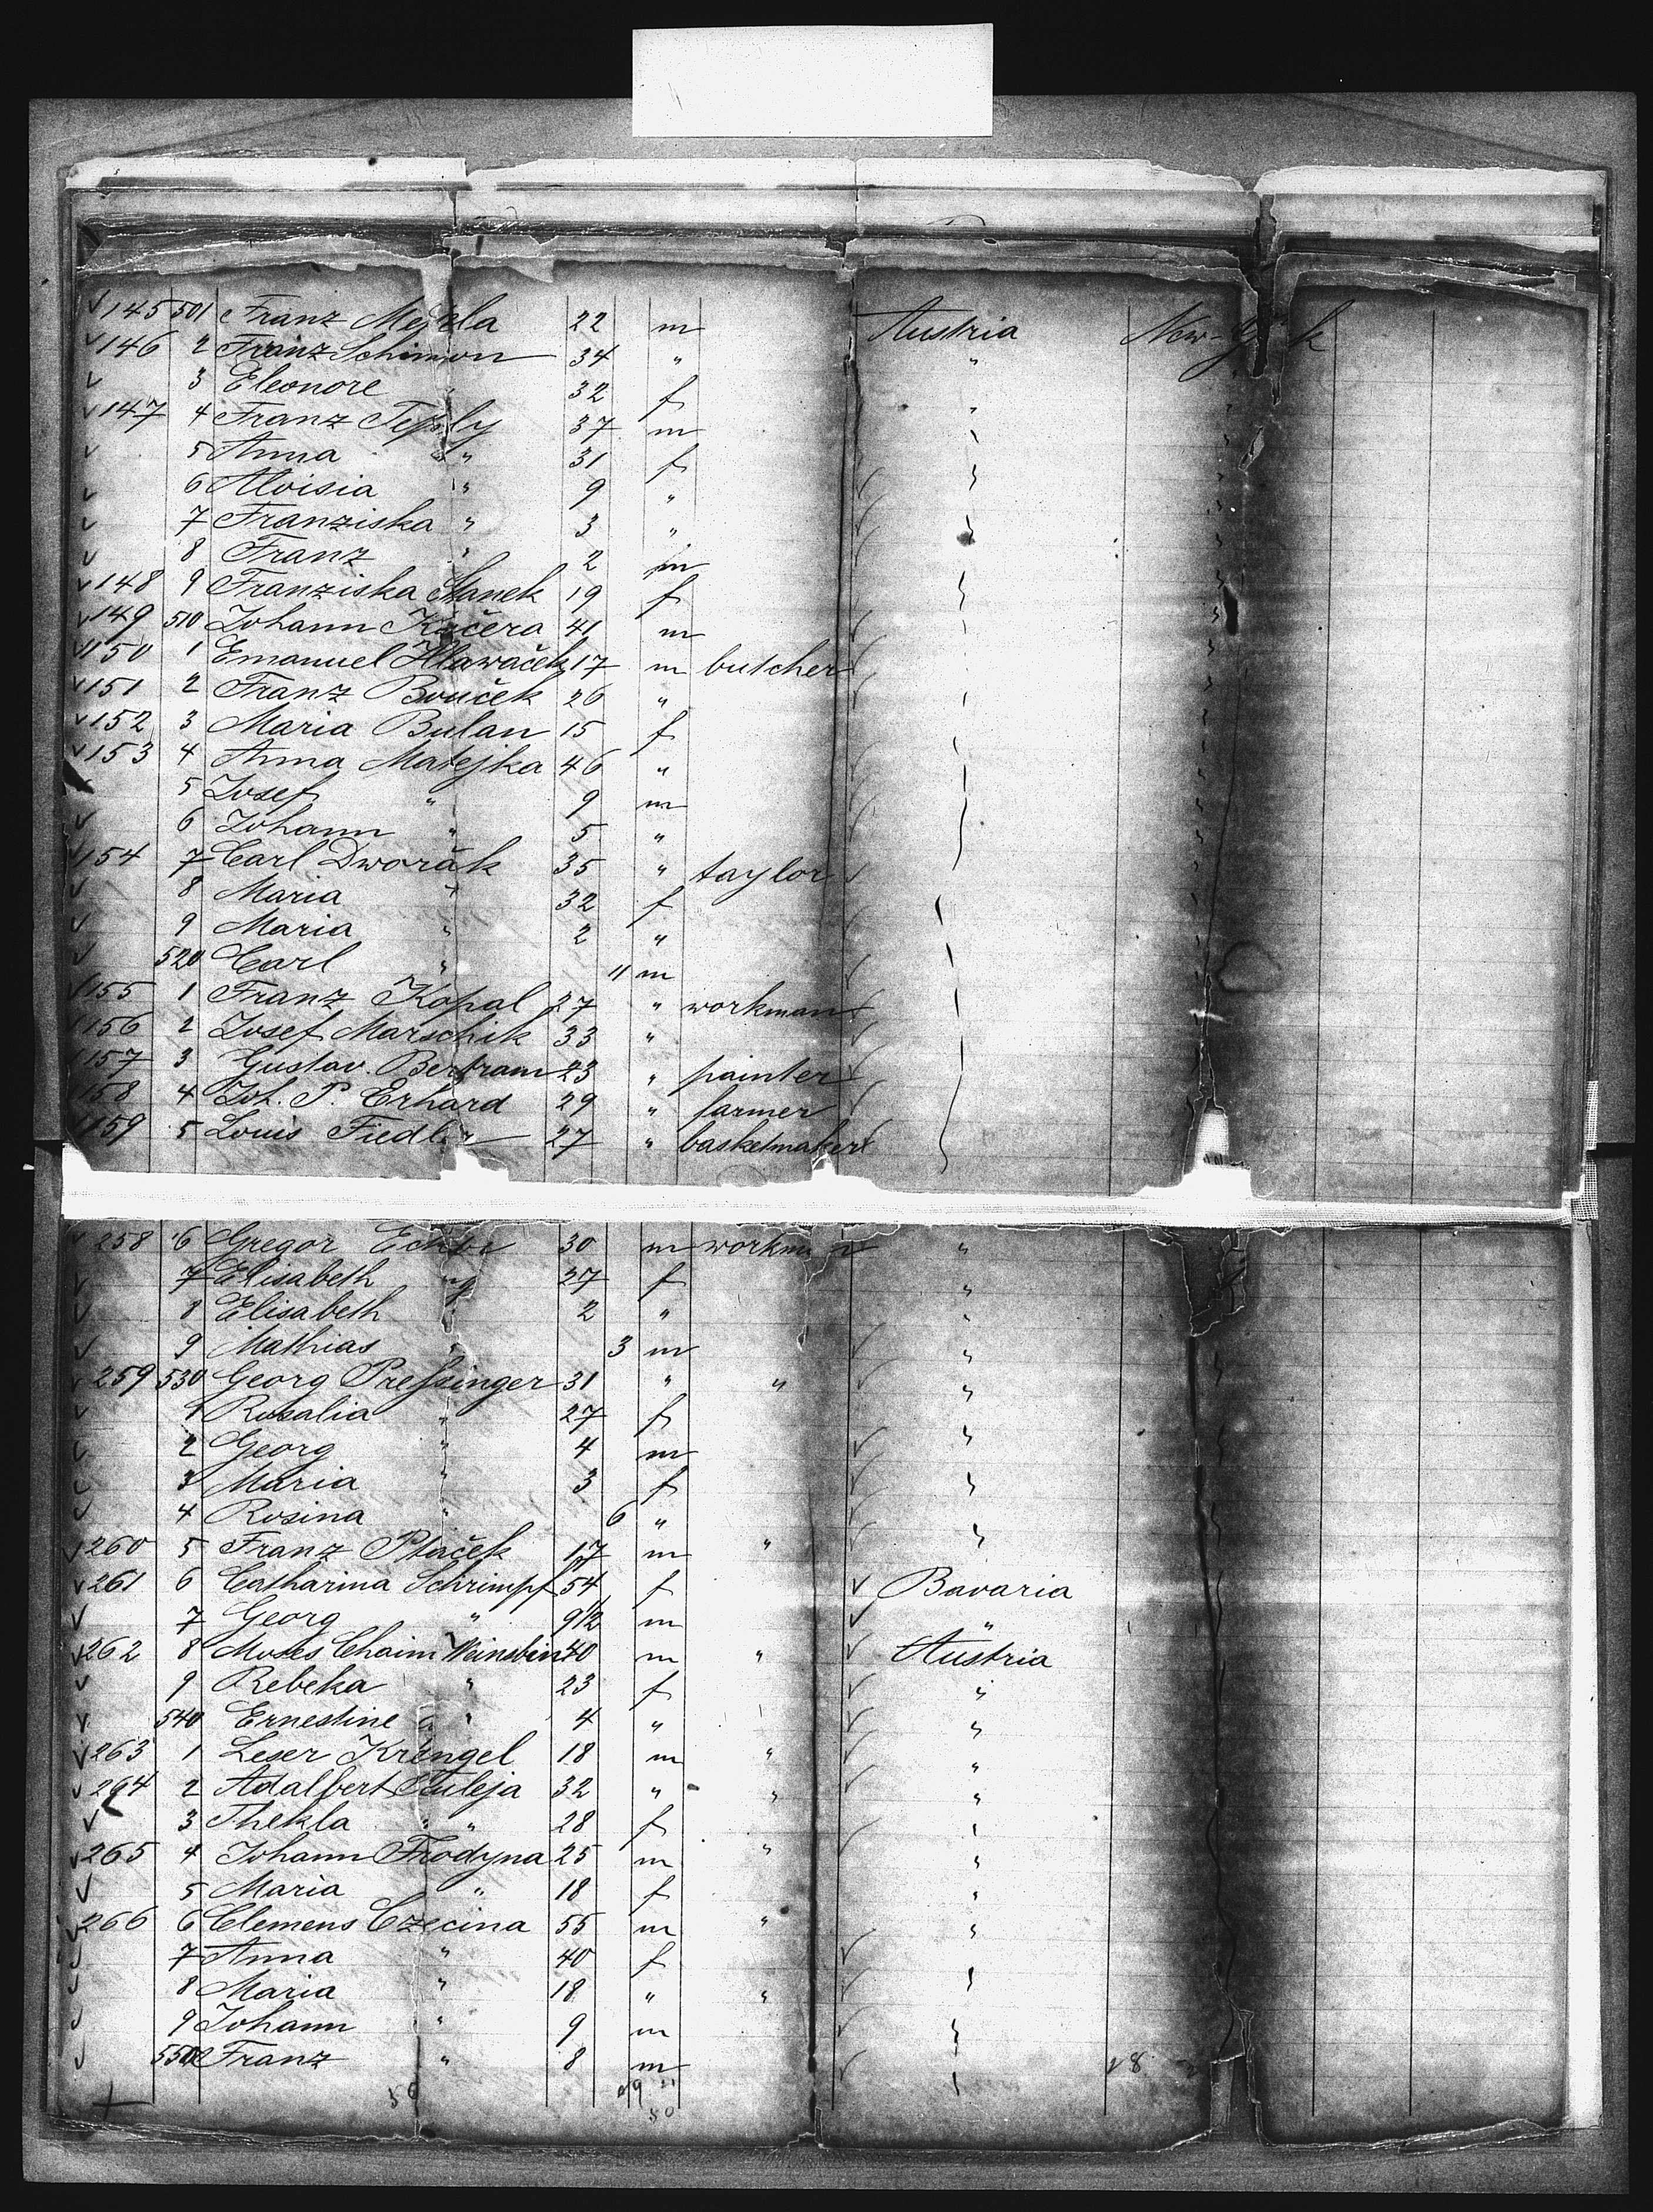 145 501 Franz 22 m Austria New-York
146 2 Franz Schimon 34 " "
3 Eleonore " 32 f "
147 4 Franz Teply 37 m "
5 Anna " 31 f "
6 Aloisia " 9 " "
7 Franziska " 3 " "
8 Franz " 2 m
148 9 Franziska Stanek 19 f "
149 510 Johann Kučera 41 m "
150 1 Emanuel Hlawaček 17 m butcher "
151 2 Franz Bouček 26 " "
152 3 Maria Bulan 15 f
153 4 Anna Matejka 46 " "
5 Josef " 9 m "
6 Johann " 5 " "
154 7 Carl Dworák 35 " taylor
8 Maria " 32 f "
9 Maria " 2 " "
520 Carl " 11 m "
155 1 Franz Kopal 27 " workman "
156 2 Josef Marschik 33 "
157 3 Gustav Bertram 23 " painter "
158 4 Joh. P. Erhard 29 " farmer "
159 5 Louis Fiedler 27 " basketmaker "
258 6 Gregor 30 m workman "
7 Elisabeth " 27 f "
8 Elisabeth " 2 " "
9 Mathias " 3 m "
259 530 Georg Preßinger 31 " " "
1 Rosalia " 27 f "
2 Georg " 4 m "
3 Maria " 3 f "
4 Rosina " 6 " "
260 5 Franz Ptaček 17 m " "
261 6 Catharina Schrimpf 54 f Bavaria
7 Georg " 9 1/2 m "
262 8 Moses Chaim 40 m " Austria
9 Rebeka " 23 f "
540 Ernestine " 4 " "
263 1 Leser Krengel 18 m " "
264 2 Adalbert Tuleja 32 " " "
3 Thekla " 28 f "
265 4 Johann Frodyna 25 m " "
5 Maria " 18 f "
266 6 Clemens Czecina 55 m " "
7 Anna " 40 f "
8 Maria " 18 " " "
9 Johann " 9 m "
550 Franz " 8 m "
50